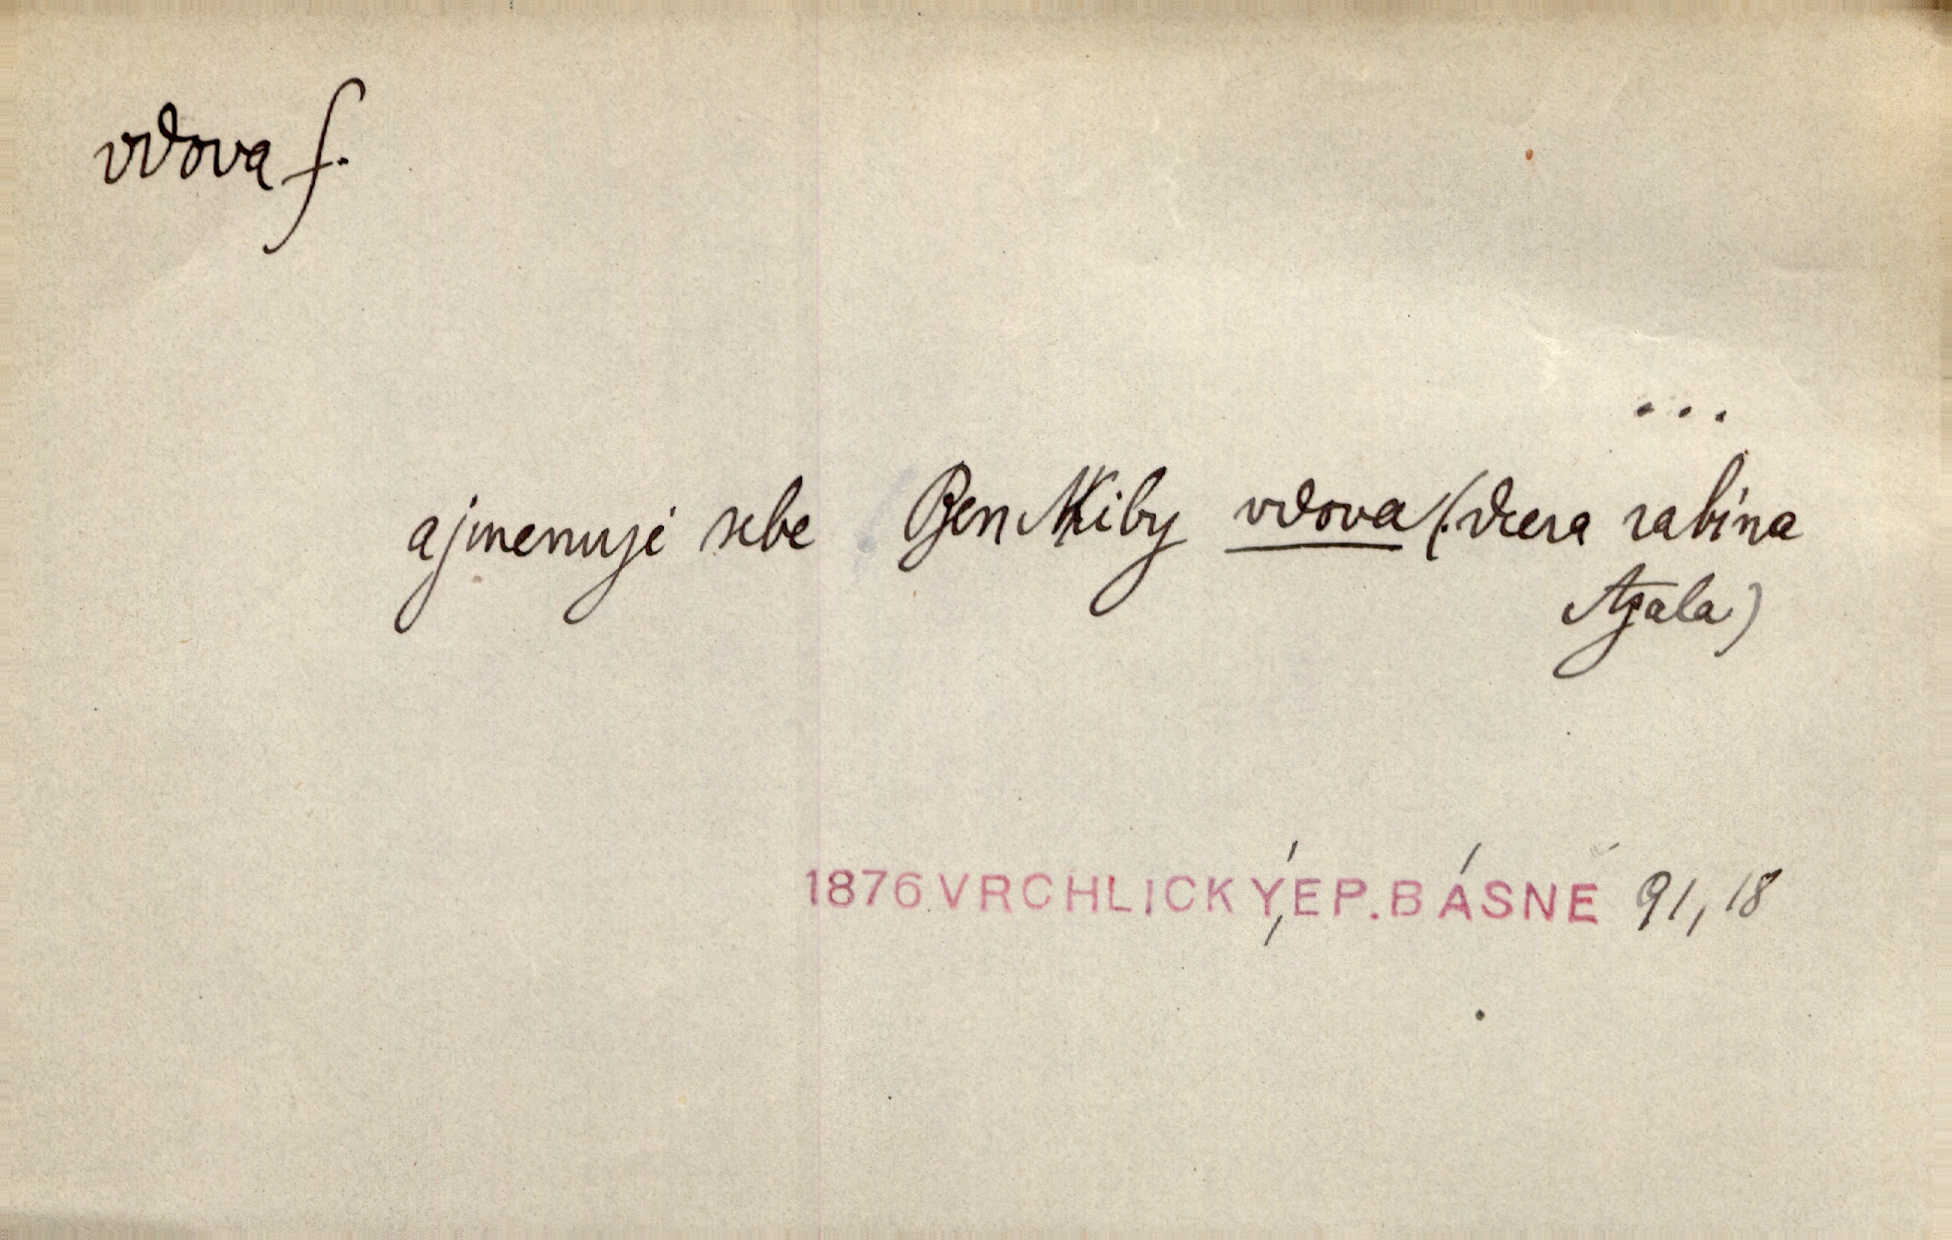 vdova f.
...
a jmenuji sebe Ben Akiby vdova (:dcera rabína
Azala)
1876 VRCHLICKÝ, EP. BÁSNĚ 91,18